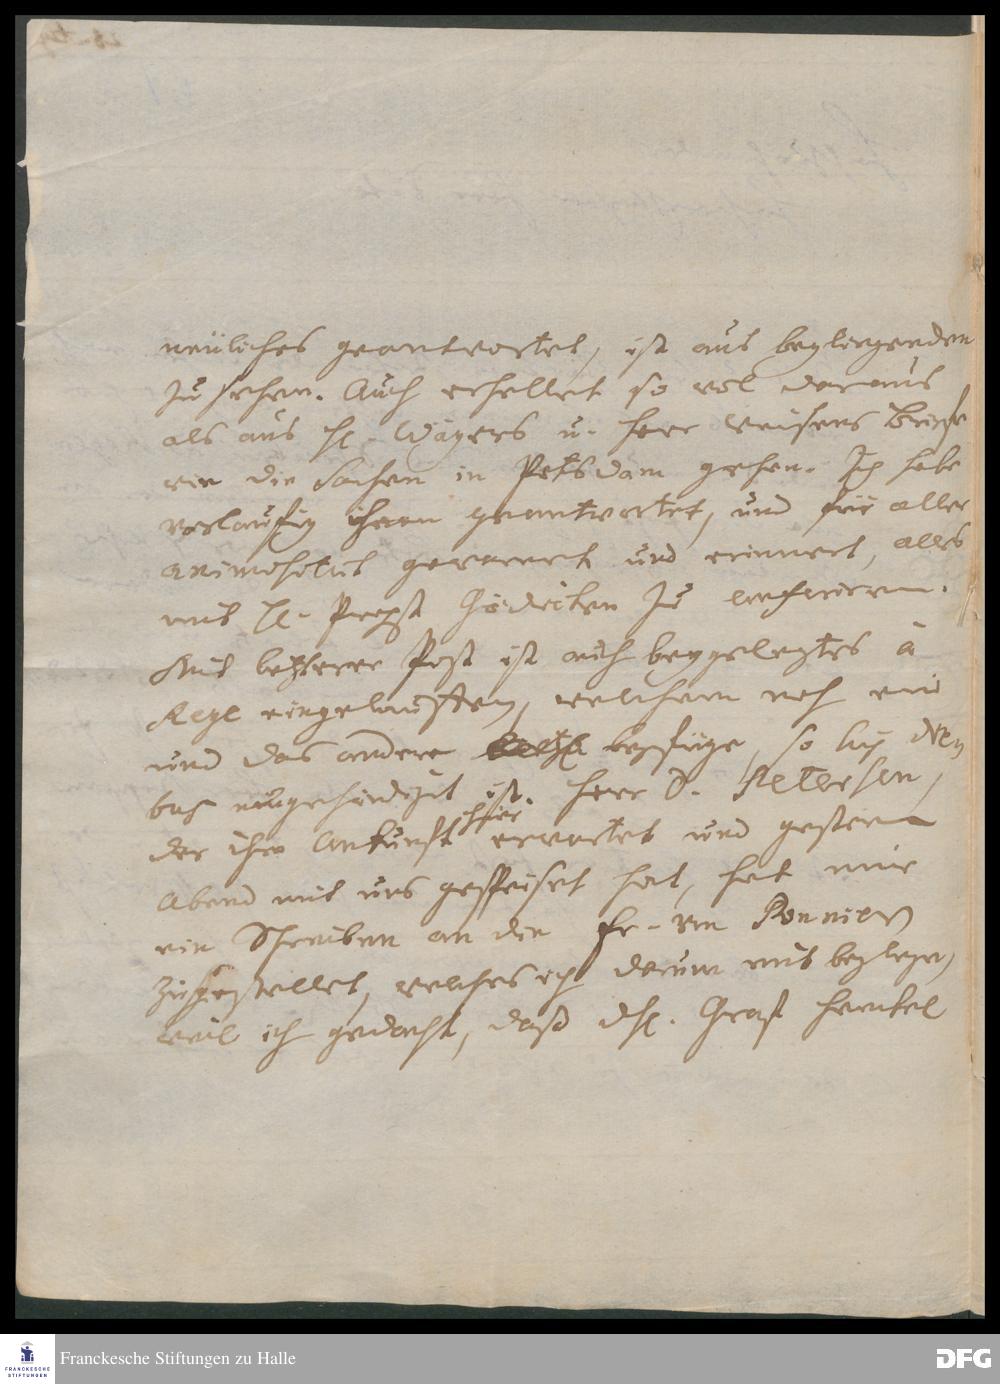 neüliches geantwortet, ist aus beyliegenden
zu sehen. Auch erhellet so wol daraus
als aus H. Wagers u. Herr Reisens Briefe
wie die Sachen in Potsdam gehen. Ich habe
vorläufig ihnen geantwortet, und für aller
animositet gewarnet und erinnert, alles
mit H. Propst Gödicken zu
Mit letzterer Post ist auch beygelegtes à
eingelauffen, welchem noch ein
und das andere beyfüge, so
ist. Herr D. Petersen,
der ihre Ankunft hier erwartet und gestern
Abend mit uns gespeiset hat, hat mir
ein Schreiben an die Fr. von
zugestellet, welches ich darum mit beylege,
weil ich gedacht, daß dH. Graff Henckel
Franckesche Stiftungen zu Halle
FRANCKESCHE
STIFTUNGEN
DFG